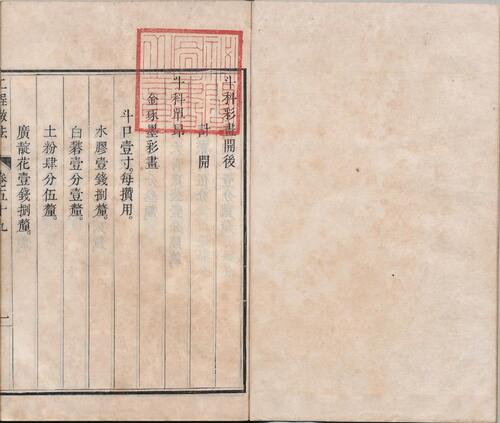 斗科彩畫開後
計開
斗科單昂
金琢墨彩畫
斗口壹寸。每攢用。
水膠壹錢捌釐。
白礬壹分壹釐。
土粉肆分伍釐。
廣靛花壹錢捌釐。
工程做法 卷五十九 一